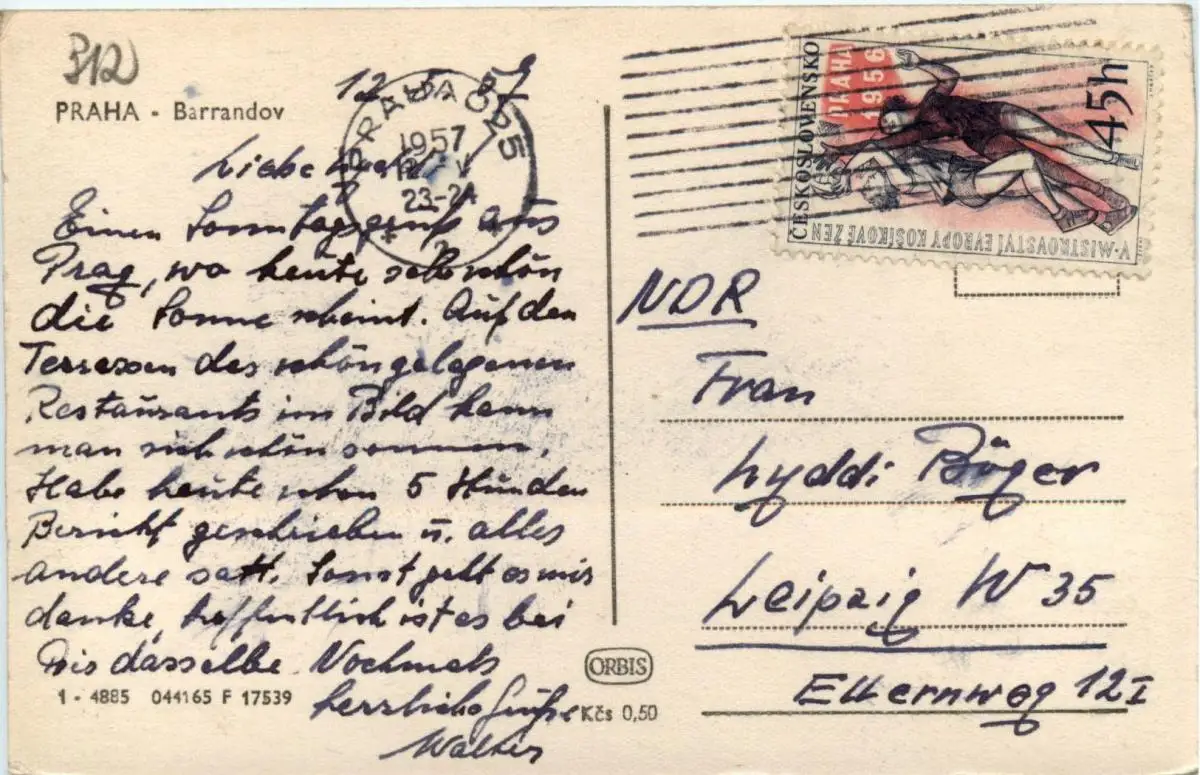 312
PRAHA - Barrandov
12 5 57
PRAHA 025
1957
23-24
Liebe
Einen Sonntagsgruß aus
Prag, wo heute sehr schön
die Sonne scheint. Auf den
Terrassen des schöngelegenen
Restaurants im Bild kann
man sich schön sonnen.
Habe heute schon 5 Stunden
Bericht geschrieben u. alles
andere satt. Sonst geht es mir
danke, hoffentlich ist es bei
Dir dasselbe. Nochmals
herzliche Grüße
Walter
1 - 4885 044165 F 17539
ORBIS
Kčs 0,50
ČESKOSLOVENSKO
PRAHA
1956
45h
V. MISTROVSTVÍ EVROPY KOŠÍKOVÉ ŽEN
NDR
Frau
Lyddi Böger
Leipzig W 35
Ellernweg 12 I